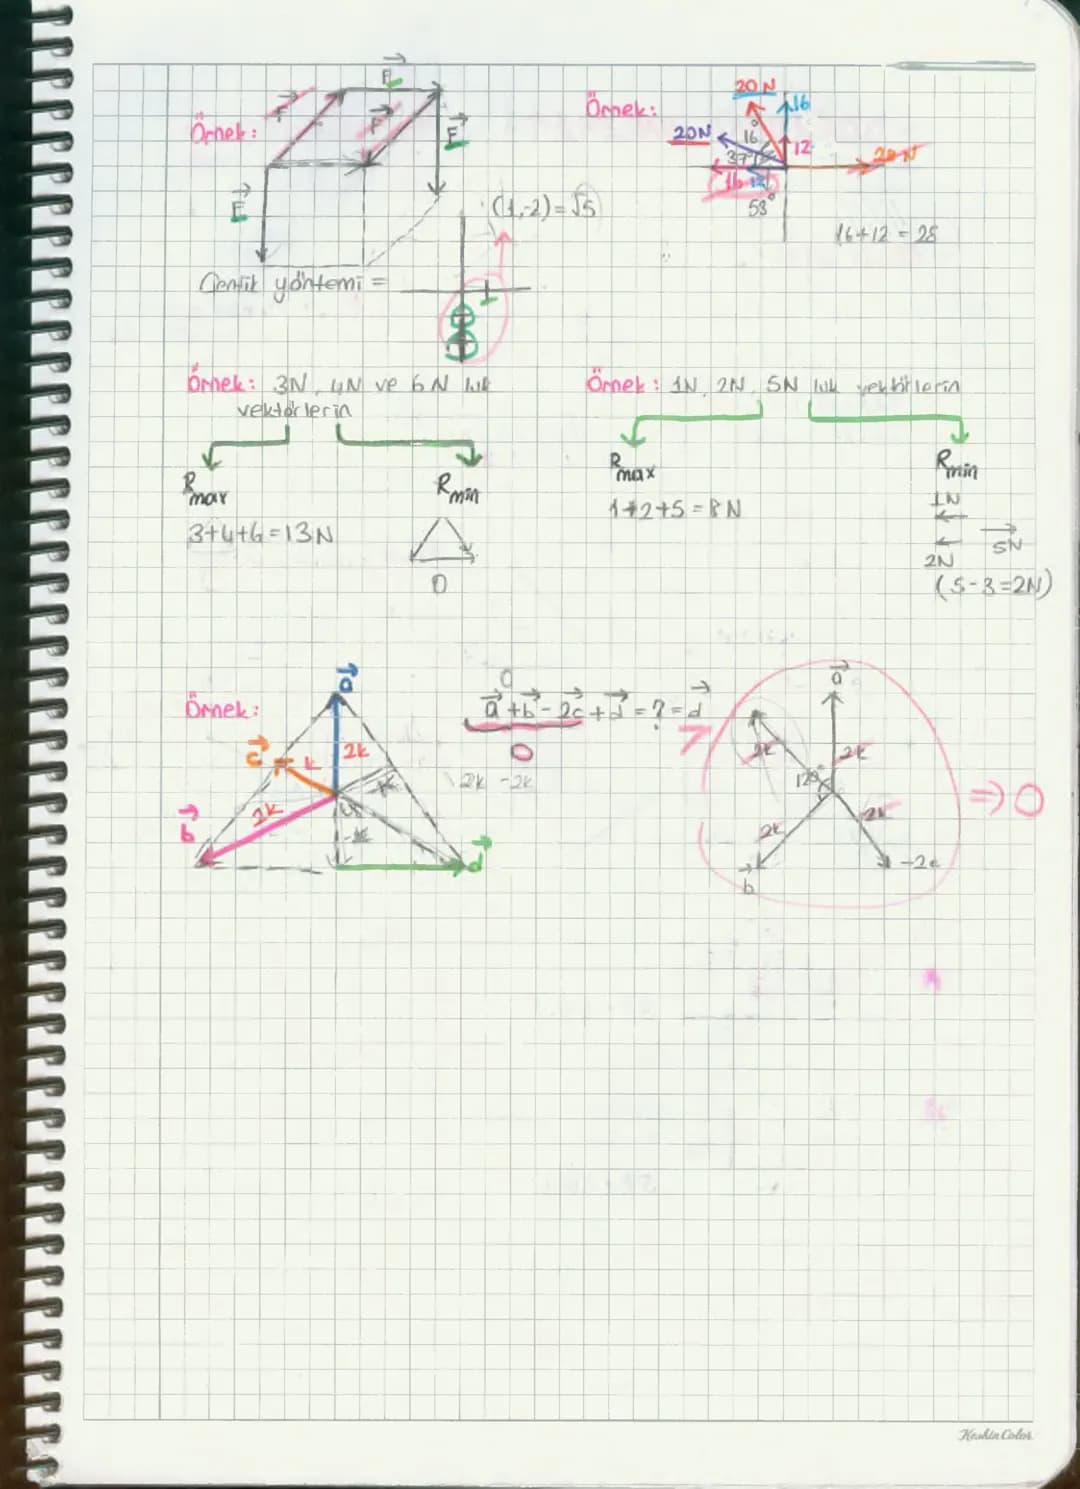 Örnek:
F
F
F
F
F
(1,-2)=√5
Çentik yöntemi =
Örnek:
20N
16
20N
16
37°
12
28N
16
12
53°
16+12=28
Örnek: 3N, 4N ve 6N luk
vektörlerin
Rmax
Rmin
3+4+6=13N
0
Örnek: 1N, 2N, 5N luk vektörlerin
Rmax
Rmin
1+2+5=8N
1N
5N
2N
(5-3=2N)
Örnek:
a
c
k
2k
b
2k
-k
-k
d
0
a+b-2c+d=?=d
0
2k -2k
a
2k
2k
120°
2k
2k
b
-2c
=> 0
Keskin Color